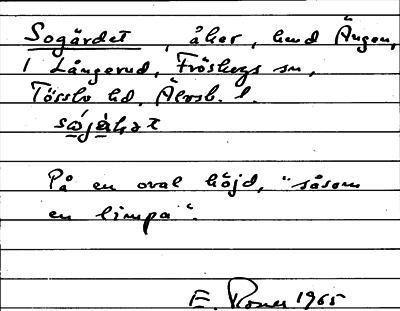 Sogärdet, åker, hmd Ängen,
1 Långerud, Fröskogs sn,
Tössbo hd. Älvsb. l.
På en oval höjd, "såsom
en limpa".
E. 1965